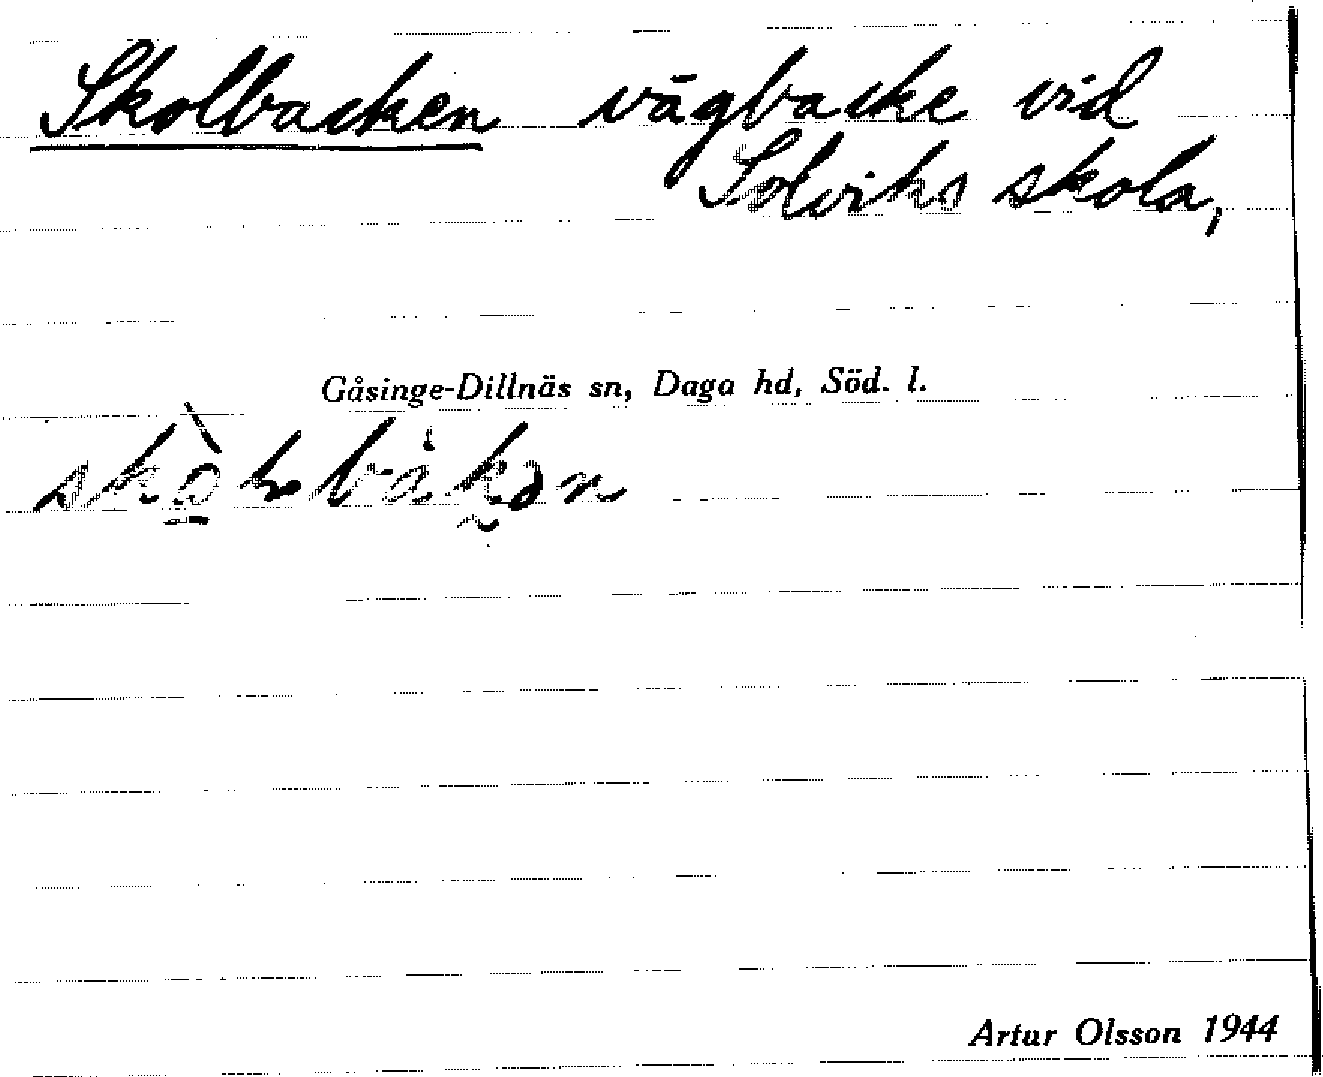 Skolbacken vägbacke vid
Solviks skola,
Gåsinge-Dillnäs sn, Daga hd, Söd. l.
Artur Olsson 1944